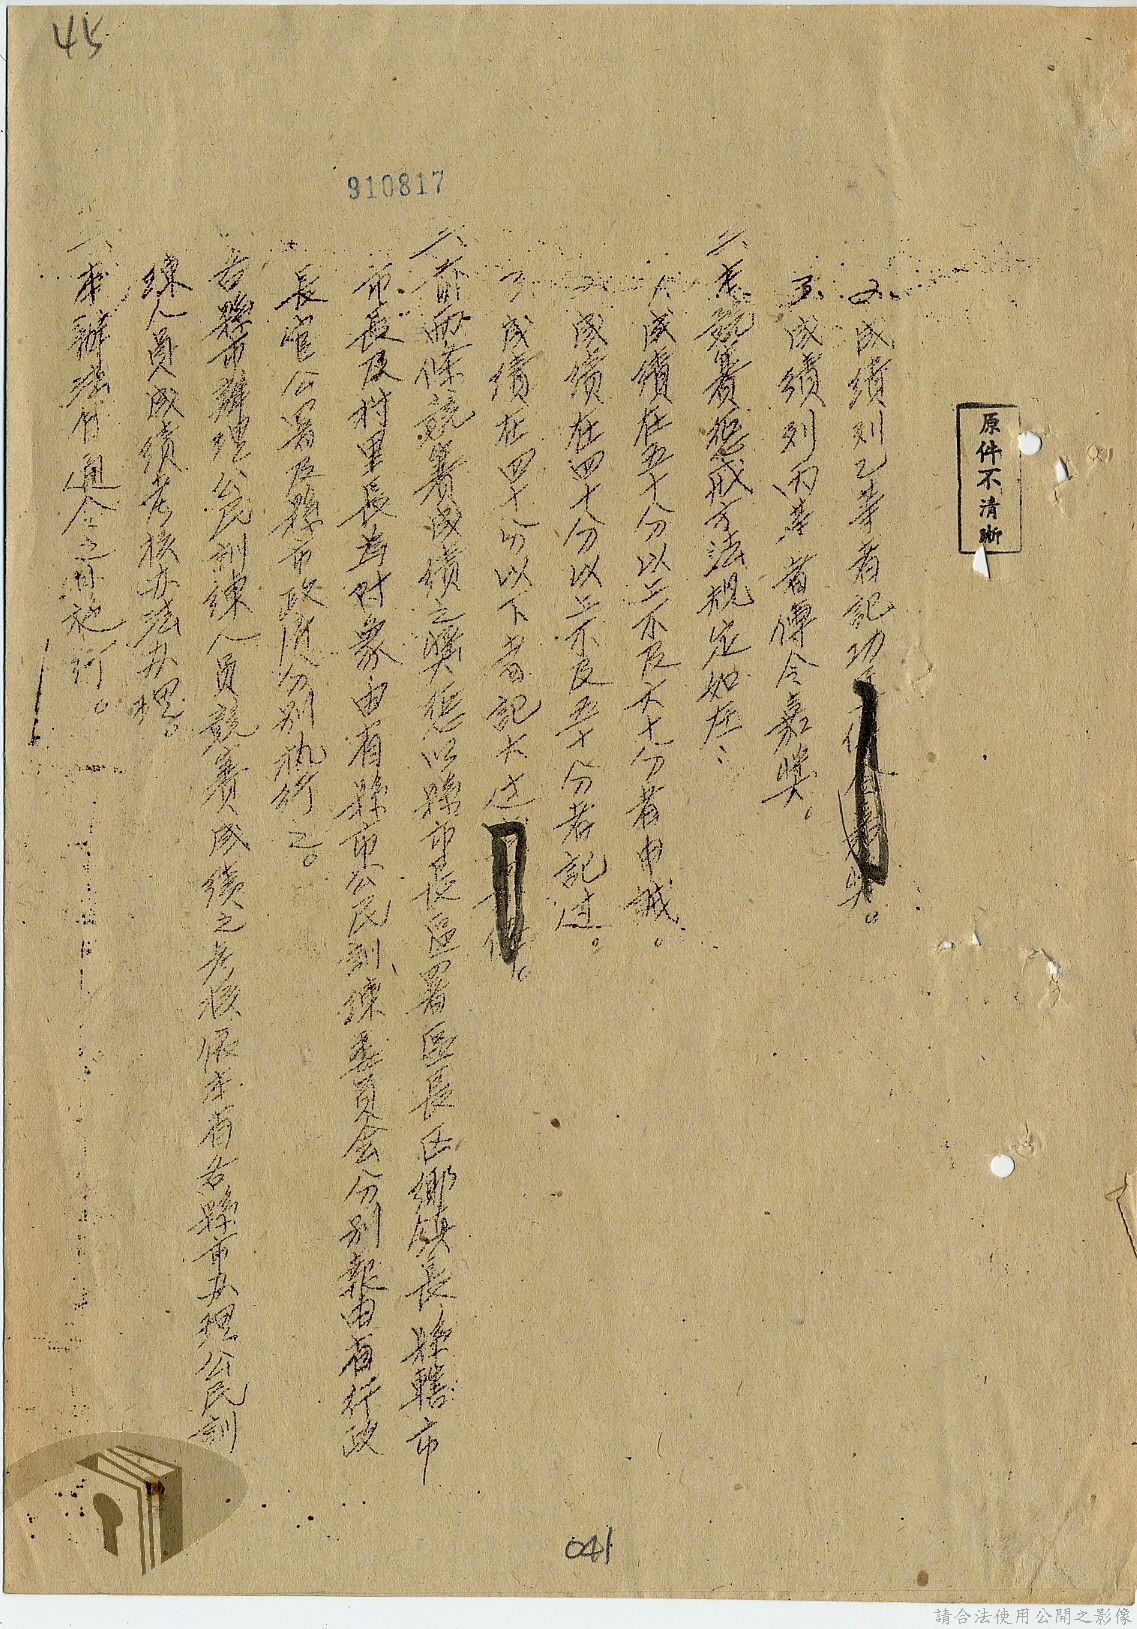 45
910817
原件不清晰
2.成績列乙等者記功
3.成績列丙等者傳令嘉獎。
六、本競賽懲戒方法規定如左:
1.成績在五十分以上不及六十分者申誡。
2.成績在四十分以上不及五十分者記过。
3.成績在四十分以下者記大过
六、前兩條競賽成績之獎懲以縣市長區署區長区鄉鎮長縣轄市
市長及村里長為对象由省縣市公民訓練委員会分別報由省行政
長官公署及縣市政府分別执行之。
各縣市辦理公民訓練人員競賽成績之考核依本省各縣市办理公民訓
練人員成績考核办法办理。
六、本辦法自通令之日施行。
041
請合法使用公開之影像